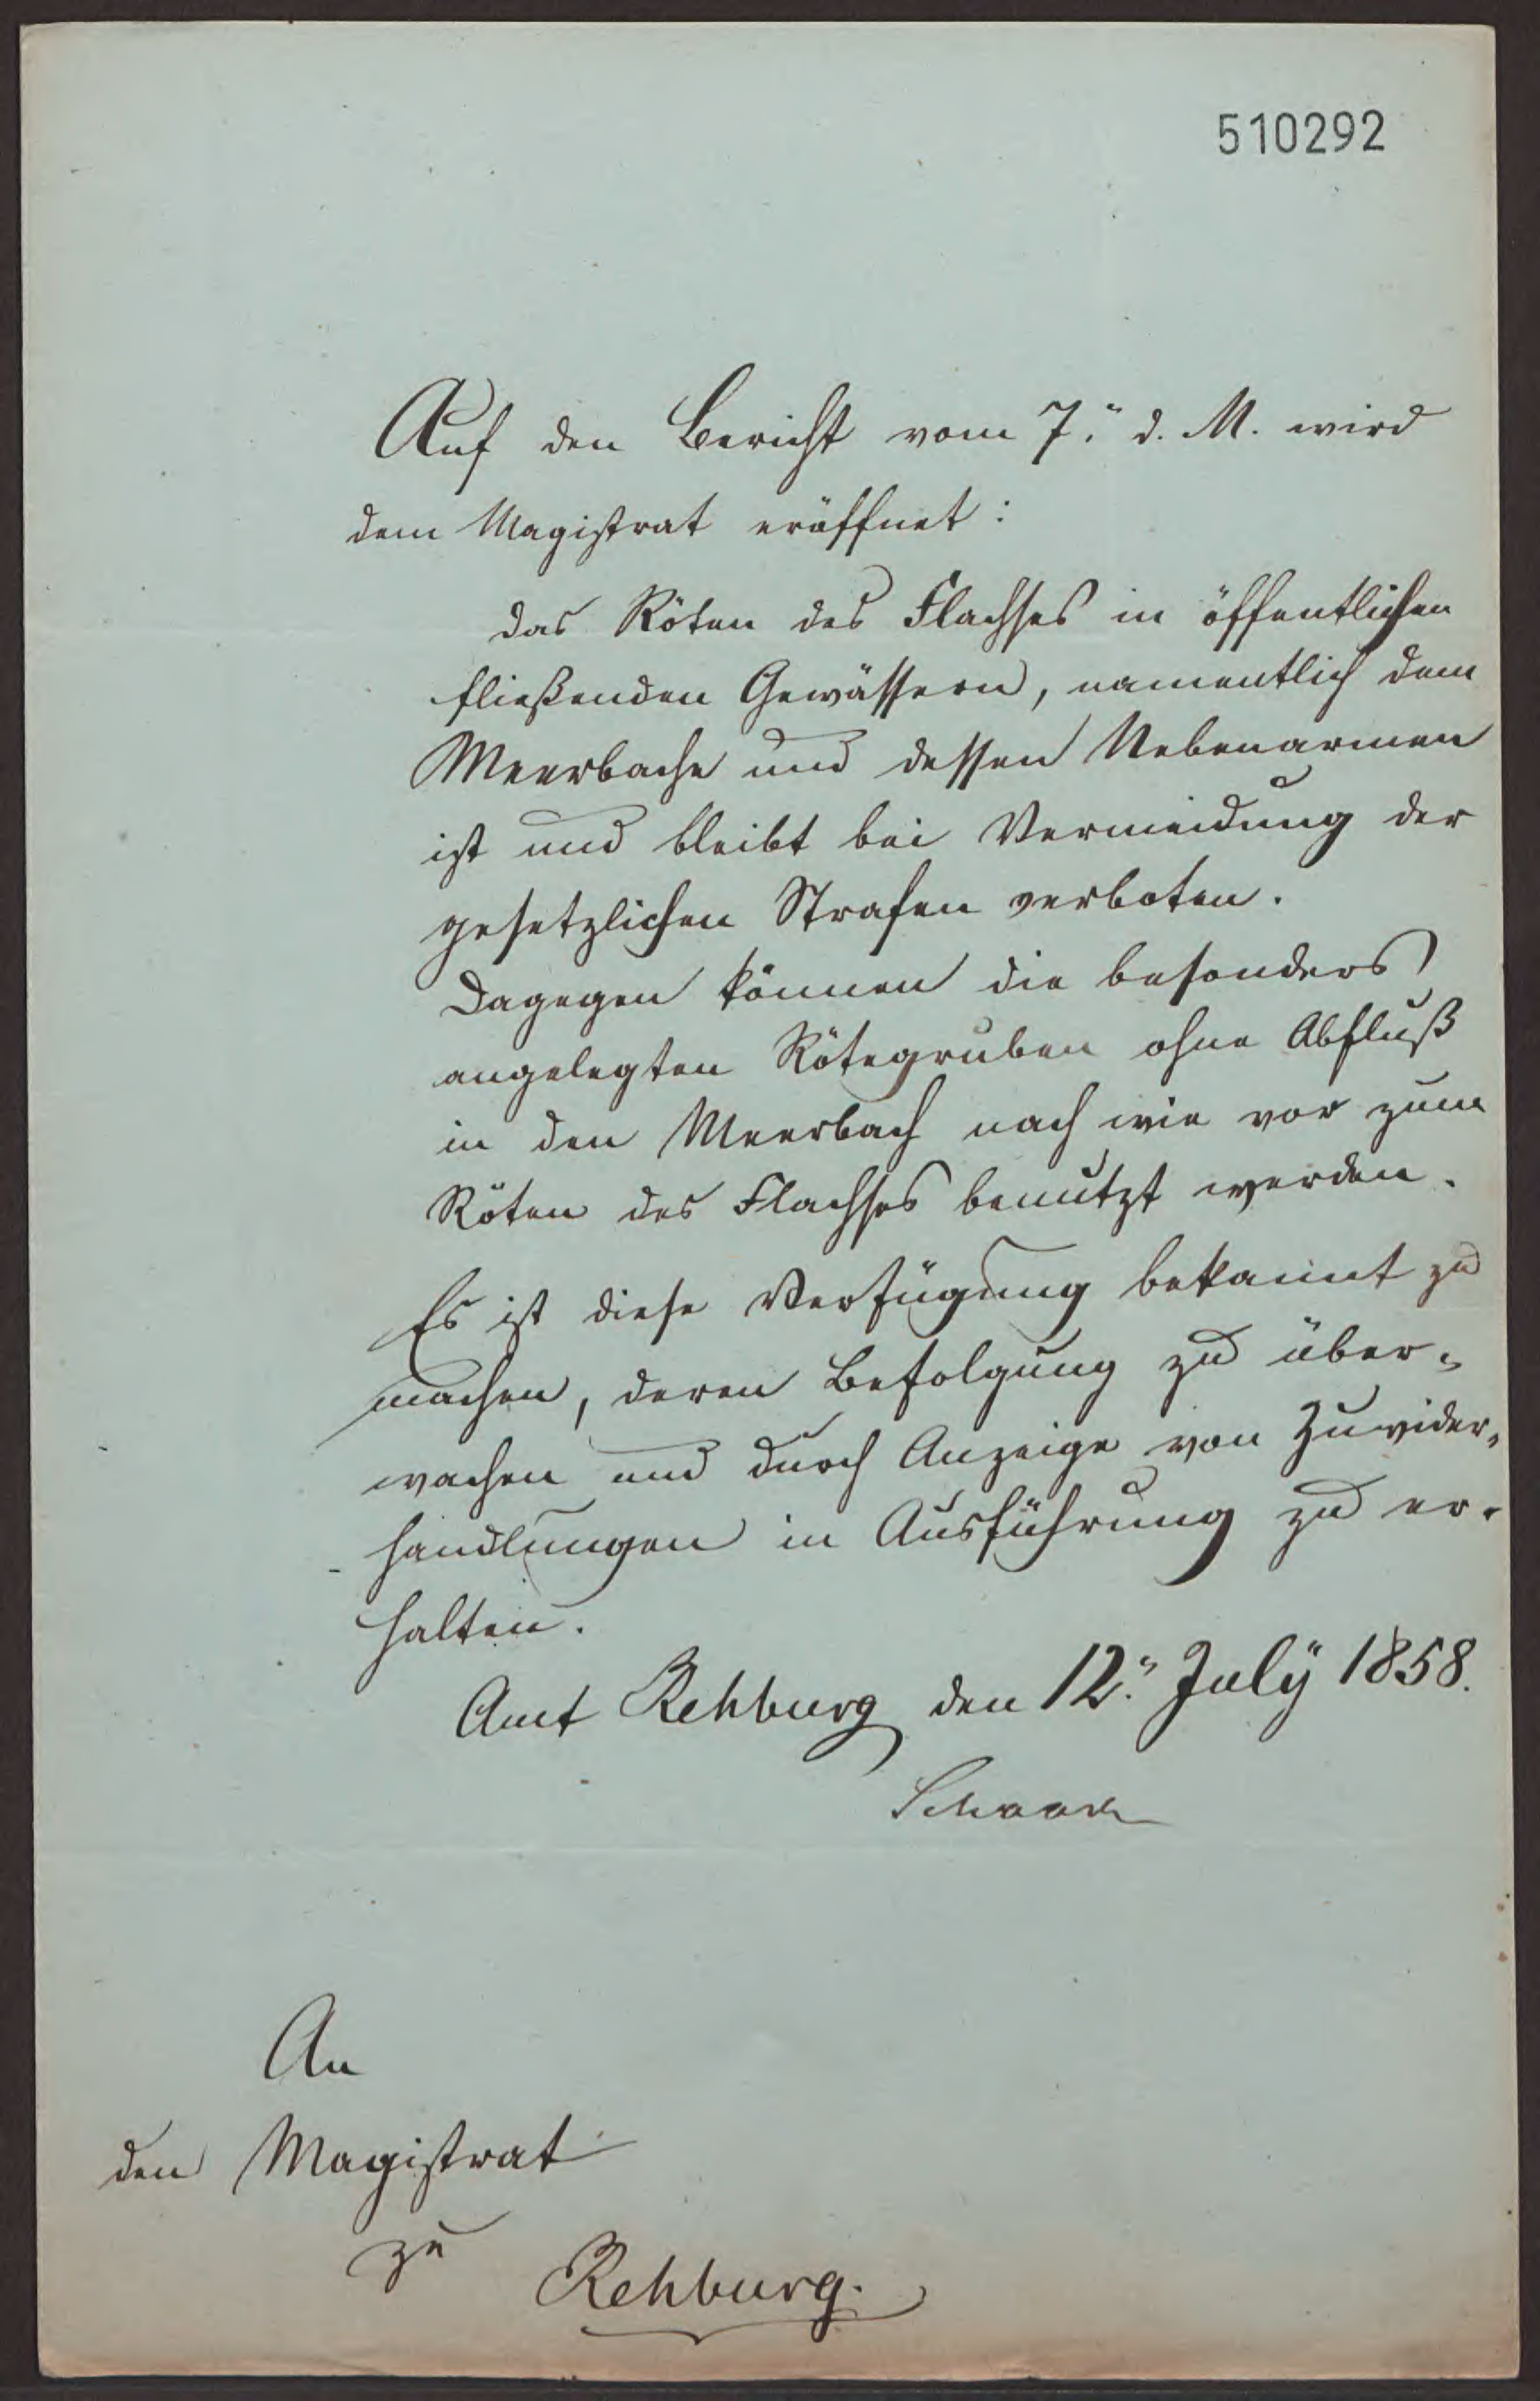 510292
Auf den Bericht vom 7.ⁿ d. M. wird
dem Magistrat eröffnet:
das Röten des Flachses in öffentlichen
fließenden Gewässern, namentlich dem
Meerbache und dessen Nebenarmen
ist und bleibt bei Vermeidung der
gesetzlichen Strafen verboten.
Dagegen können die besonders
angelegten Rötegruben ohne Abfluß
in den Meerbach nach wie vor zum
Röten des Flachses benutzt werden.
Es ist diese Verfügung bekannt zu
machen, deren Befolgung zu über-
wachen und durch Anzeige von Zuwider-
handlungen in Ausführung zu er-
halten.
Amt Rehburg den 12.ⁿ Julÿ 1858.
An
den Magistrat
zu
Rehburg.